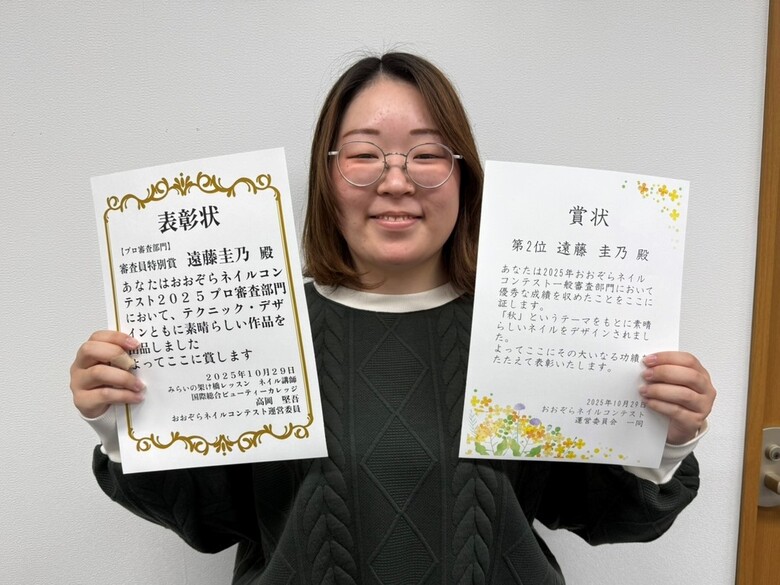 表彰状
【プロ審査部門】
審査員特別賞 遠藤圭乃 殿
あなたはおおぞらネイルコン
テスト2025プロ審査部門
において、テクニック・デザ
インともに素晴らしい作品を
出品しました
よってここに賞します
2025年10月29日
みらいの架け橋レッスン ネイル講師
国際総合ビューティーカレッジ
高岡 堅吾
おおぞらネイルコンテスト運営委員
賞状
第2位 遠藤 圭乃 殿
あなたは2025年おおぞらネイル
コンテスト一般審査部門において
優秀な成績を収めたことをここに
証します。
「秋」というテーマをもとに素晴
らしいネイルをデザインされまし
た。
よってここにその大いなる功績を
たたえて表彰いたします。
2025年10月29日
おおぞらネイルコンテスト
運営委員会 一同